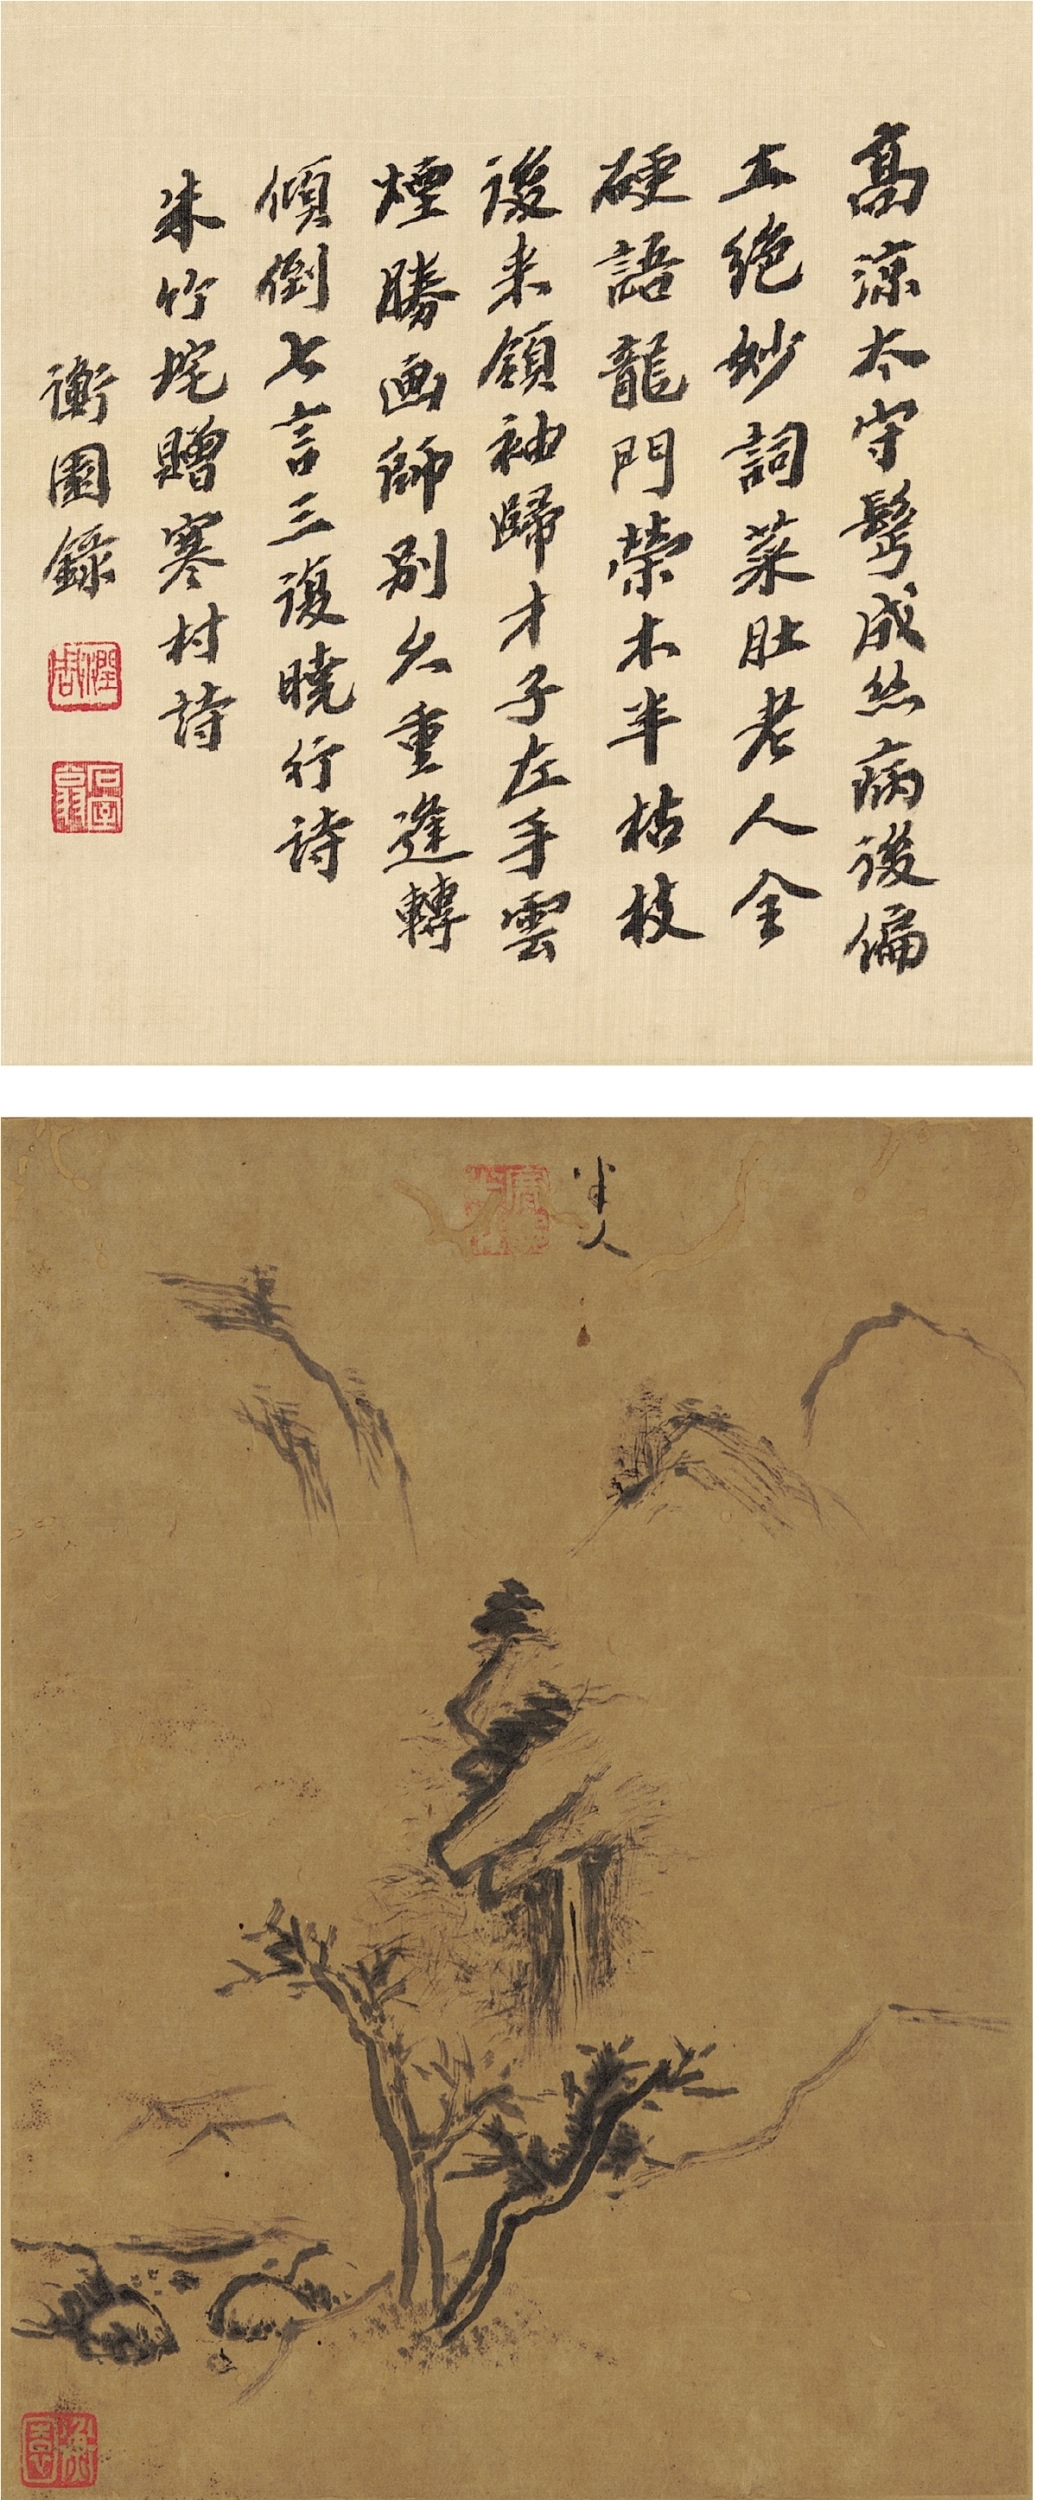 高涼太守鬢成絲病後偏
工絕妙詞菜肚老人全
硬語龍門榮木半枯枝
後來領袖歸才子左手雲
煙勝画師別久重逢轉
傾倒七言三復曉行詩
朱竹垞贈寒村詩
衡園錄
半人